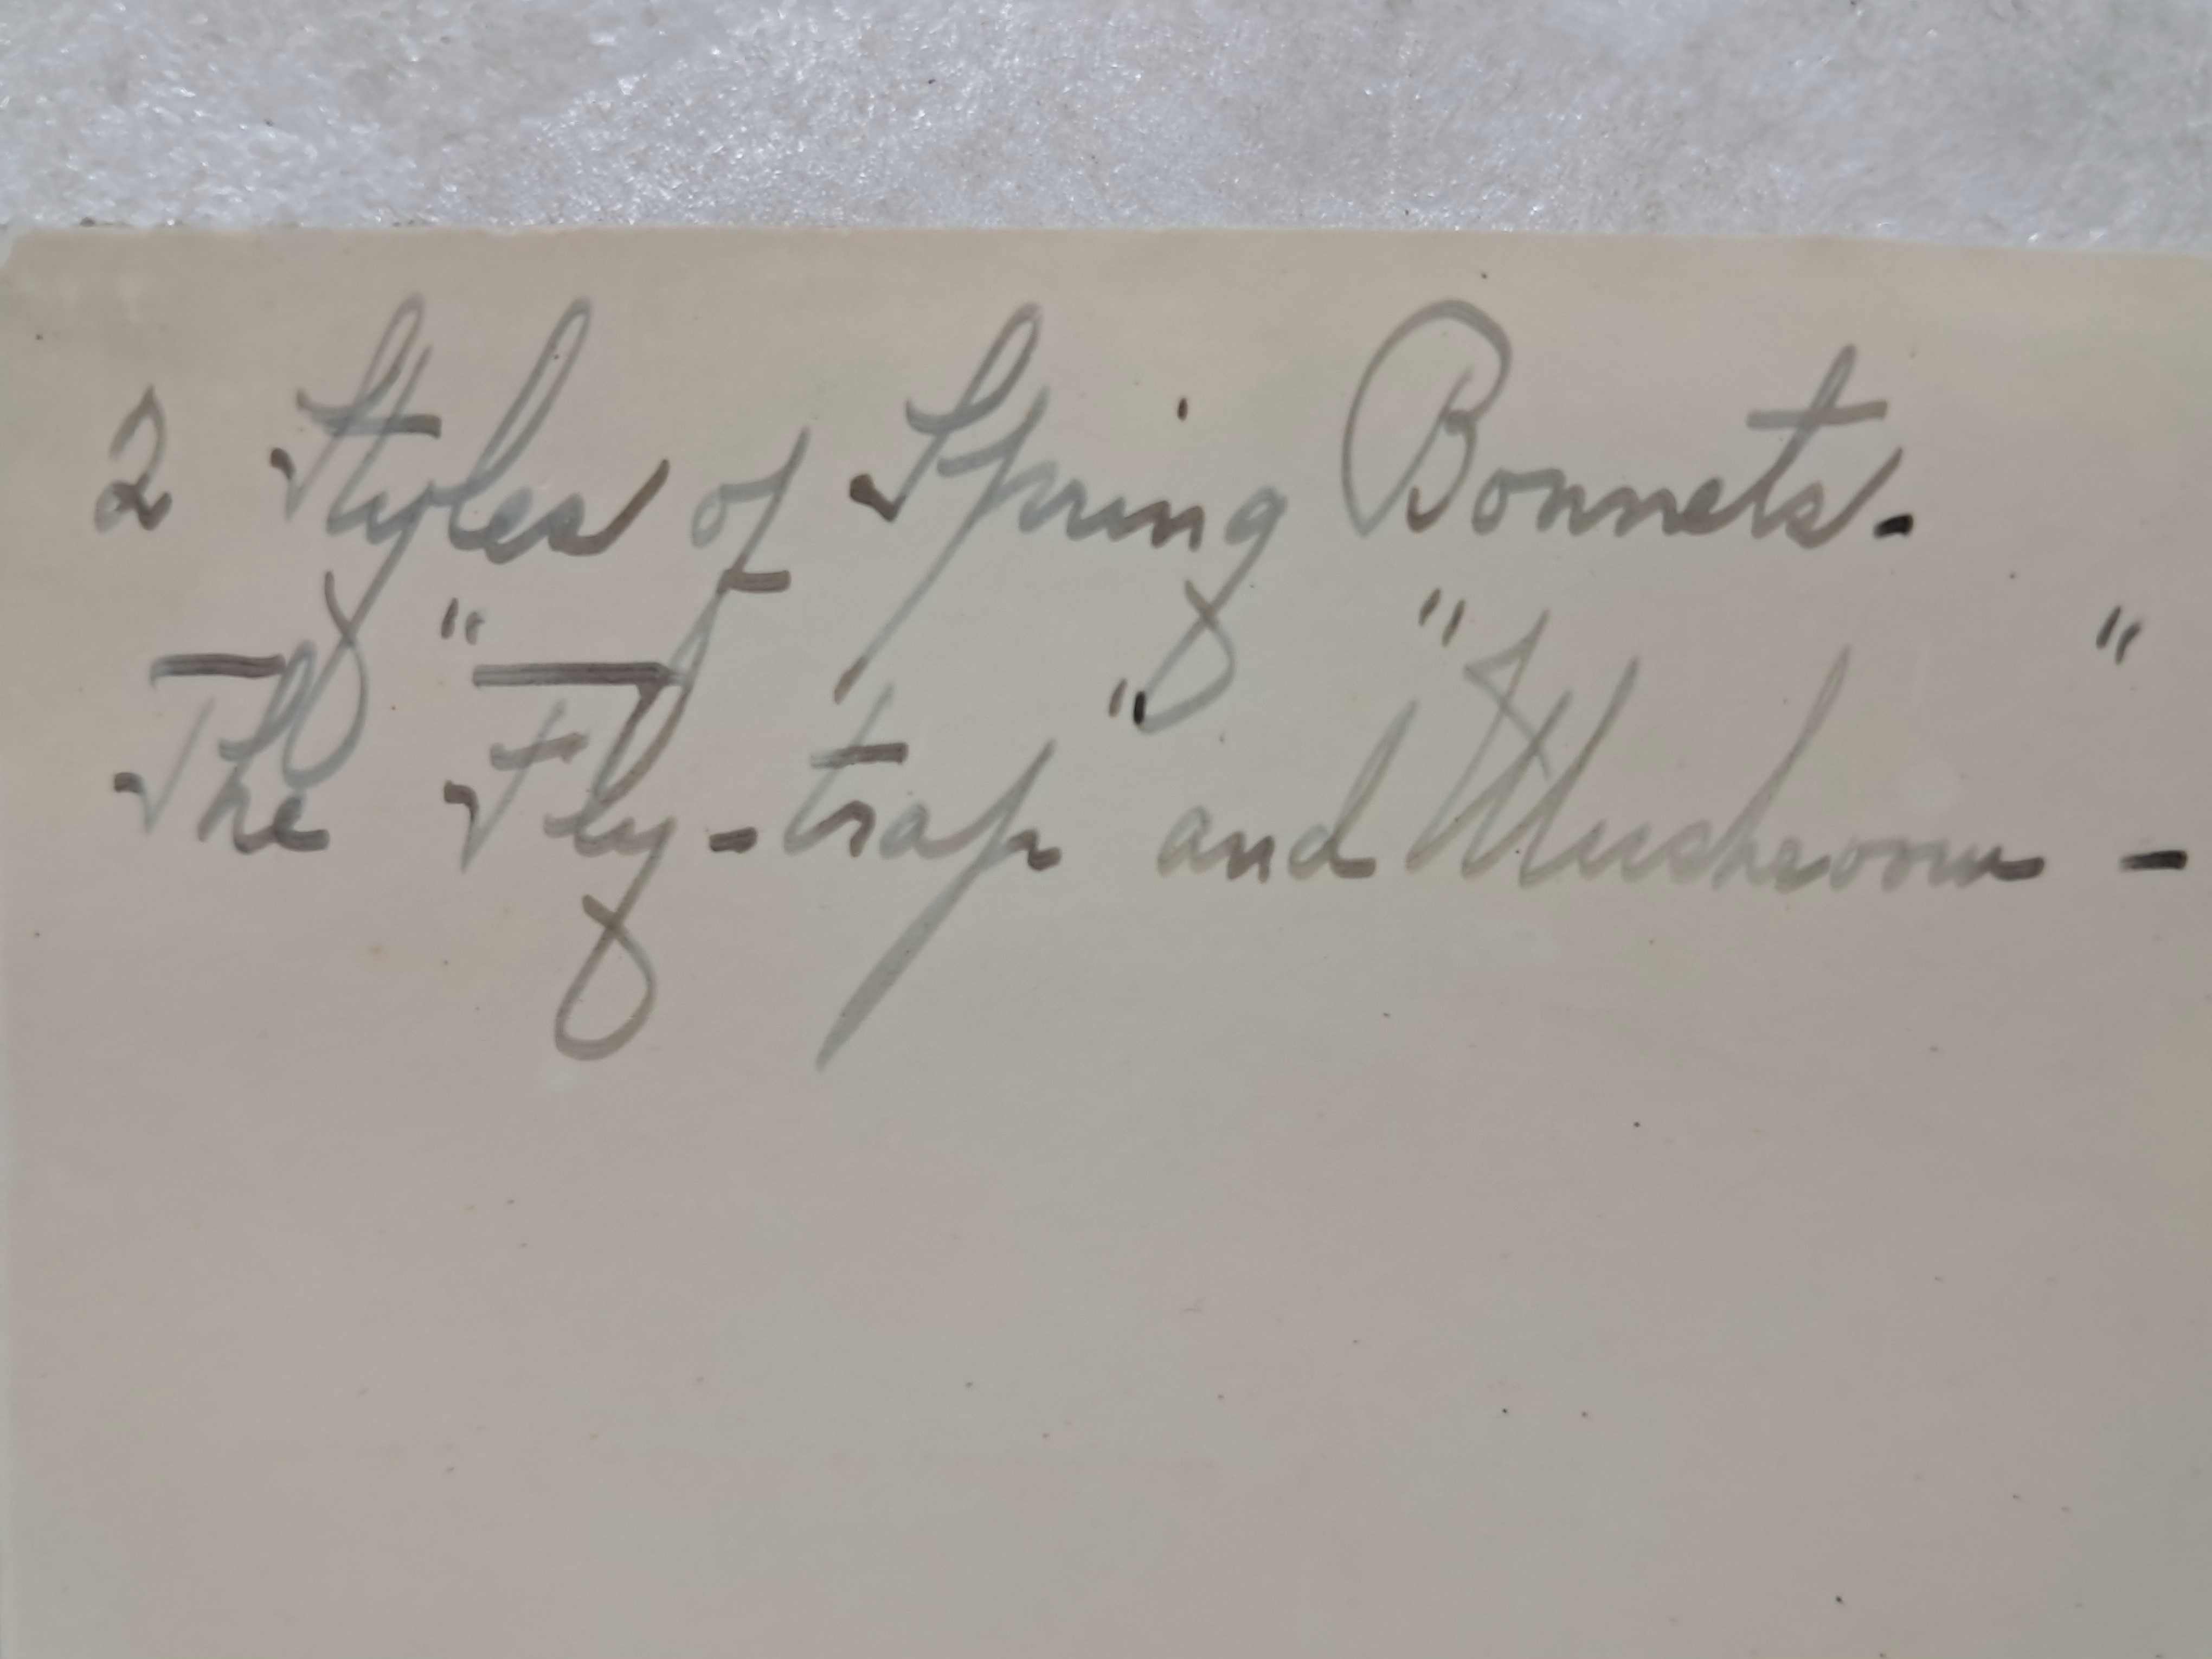 2 Styles of Spring Bonnets.
The "Fly-trap" and "Mushroom" -